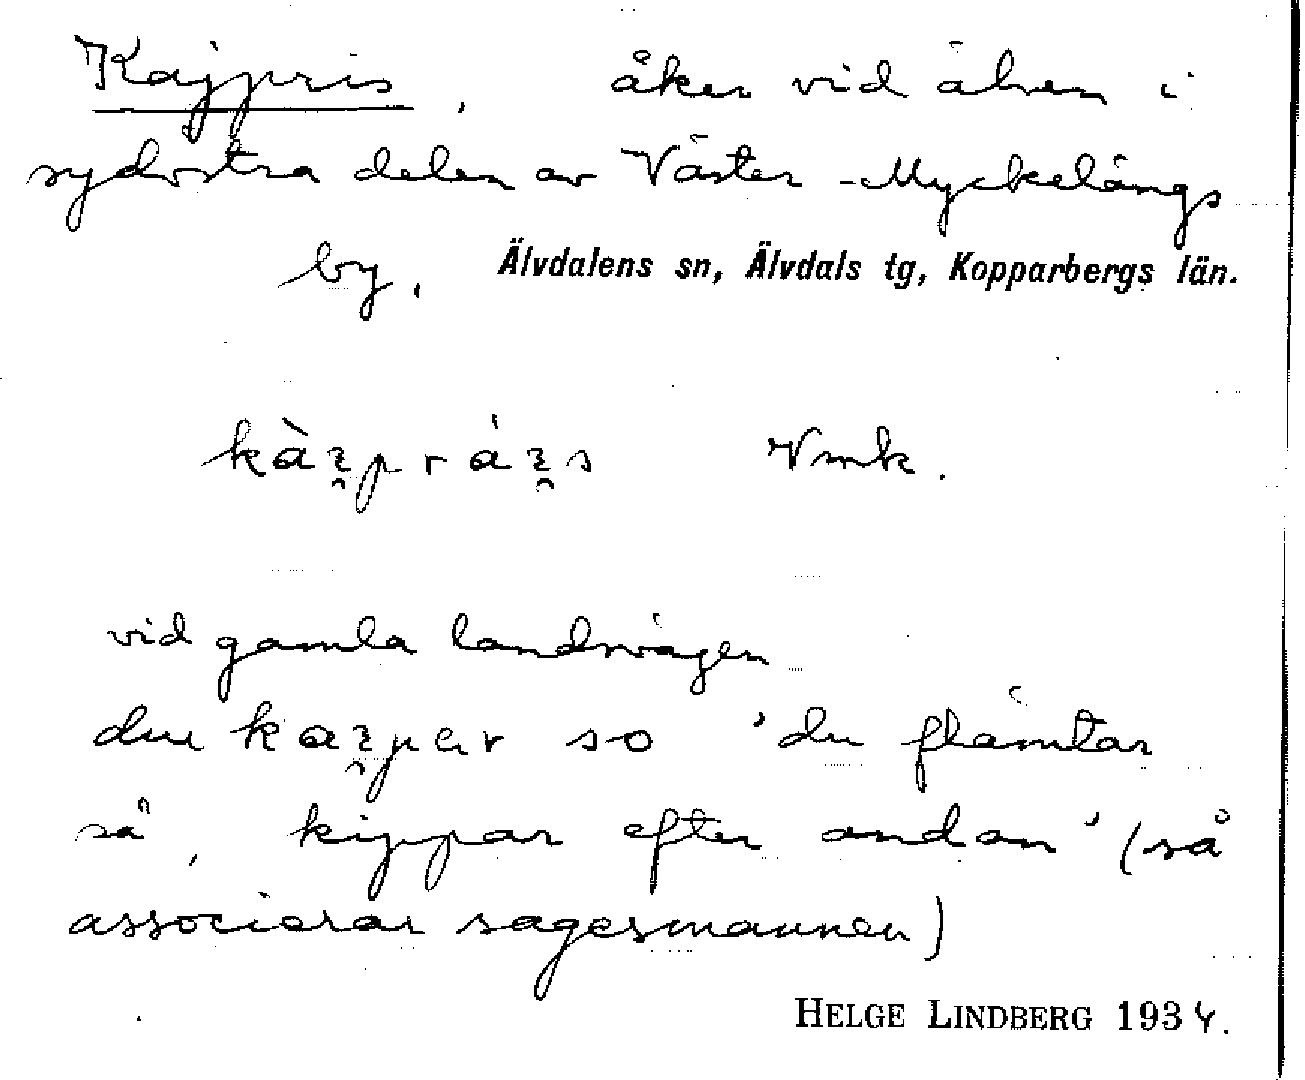 Kajpris, åker vid älven i
sydöstra delen av Väster-Myckelängs
by, Älvdalens sn, Älvdals tg, Kopparbergs län.
Vmk.
vid gamla landsvägen
du so 'du flämtar
så, kippar efter andan' (så
associerar sagesmannen)
HELGE LINDBERG 1934.